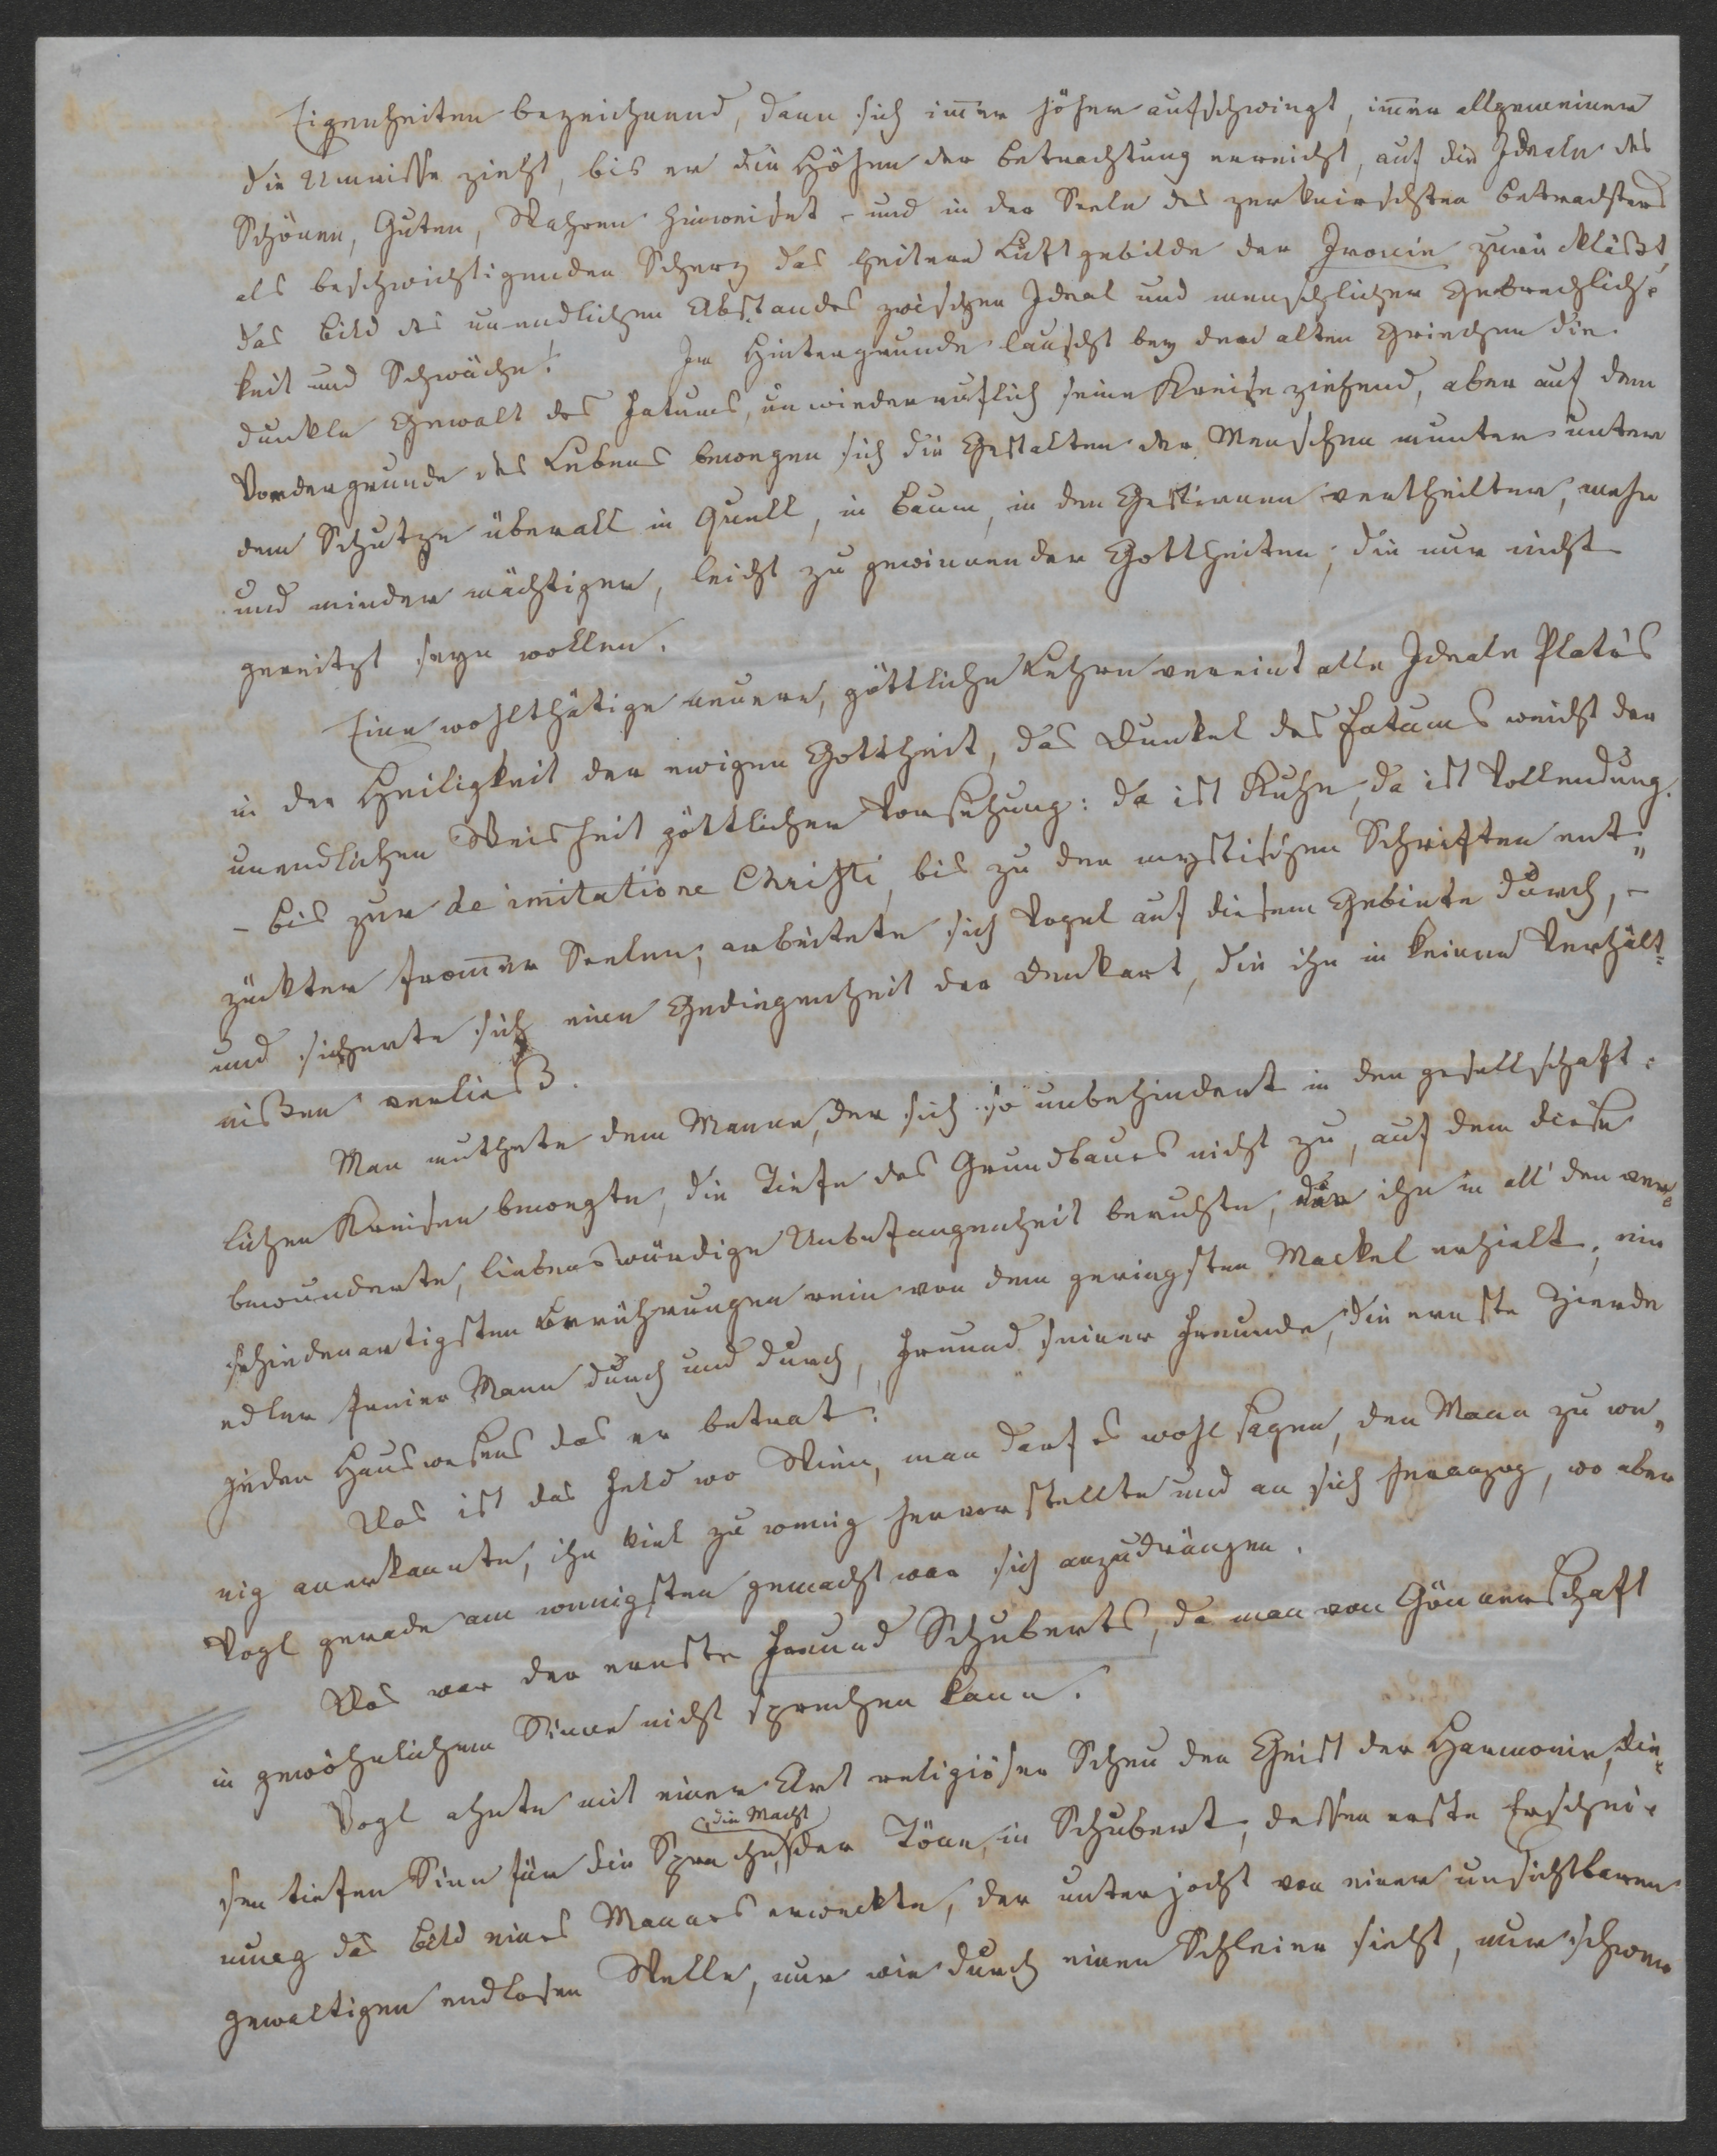 Eigenheiten bezeichnend, dann sich im̄er höher aufschwingt, im̄er allgemeinere
die Umrisse zieht, bis er die Höhen der Betrachtung erreicht, auf die Ideale des
Schönen, Guten, Wahren hinweiset – und in der Seele des zerknirschten Betrachters
als beschwichtigenden Scherz das heitere Luftgebilde der Ironie zurückläßt,
das Bild des unendlichen Abstandes zwischen Ideal und menschlicher Gebrechlich-
keit und Schwäche! Im Hintergrunde lauscht bey den alten Griechen die
dunkle Gewalt des Fatums, unwiederruflich seine Kreise ziehend, aber auf dem
Vordergrunde des Lebens bewegen sich die Gestalten der Menschen munter unter
dem Schutze überall in Quell, in Baum, in den Gestirnen vertheilter, mehr
und minder mächtiger, leicht zu gewinnender Gottheiten, die nur nicht
gereitzt seyn wollen.
Eine wohlthätige neuere, göttliche Lehre vereint alle Ideale Plato's
in der Heiligkeit der ewigen Gottheit, das Dunkel des Fatums weicht der
unendlichen Weisheit göttlicher Vorsehung: da ist Ruhe, da ist Vollendung.
– Bis zur de imitatione Christi, bis zu den mystischen Schriften ent-
zückter from̄er Seelen, arbeitete sich Vogel auf diesem Gebiete durch, –
und sicherte sich eine Gediegenheit der Denkart, die ihn in keinen Verhält-
nißen verließ.
Man muthete dem Manne, der sich so unbehindert in den gesellschaft-
lichen Kreisen bewegte, die Tiefe des Grundbaues nicht zu, auf dem diese
bewunderte, liebenswürdige Unbefangenheit beruhte, die ihn in all' den ver-
schiedenartigsten Berührungen rein von dem geringsten Mackel erhielt, ein
edler freier Mann durch und durch, Freund seiner Freunde, die ernste Zierde
jeden Hauswesens das er betrat.
Das ist das Feld wo Wien, man darf es wohl sagen, den Mann zu we-
nig anerkannte, ihn viel zu wenig hervor stellte und an sich heranzog, wo aber
Vogl gerade am wenigsten gemacht war sich anzudrängen.
Das war der ernste Freund Schuberts, da man von Gönnerschaft
in gewöhnlichem Sinne nicht sprechen kann.
Vogl ahnte mit einer Art religiöser Scheu den Geist der Harmonie, die-
sen tiefen Sinn für die Sprache, die Macht der Töne, in Schubert, dessen erste Erschei-
nung das Bild eines Mannes erweckte, der unterjocht von einer unsichtbaren
gewaltigen endlosen Welle, nur wie durch einen Schleier sieht, nur schwer